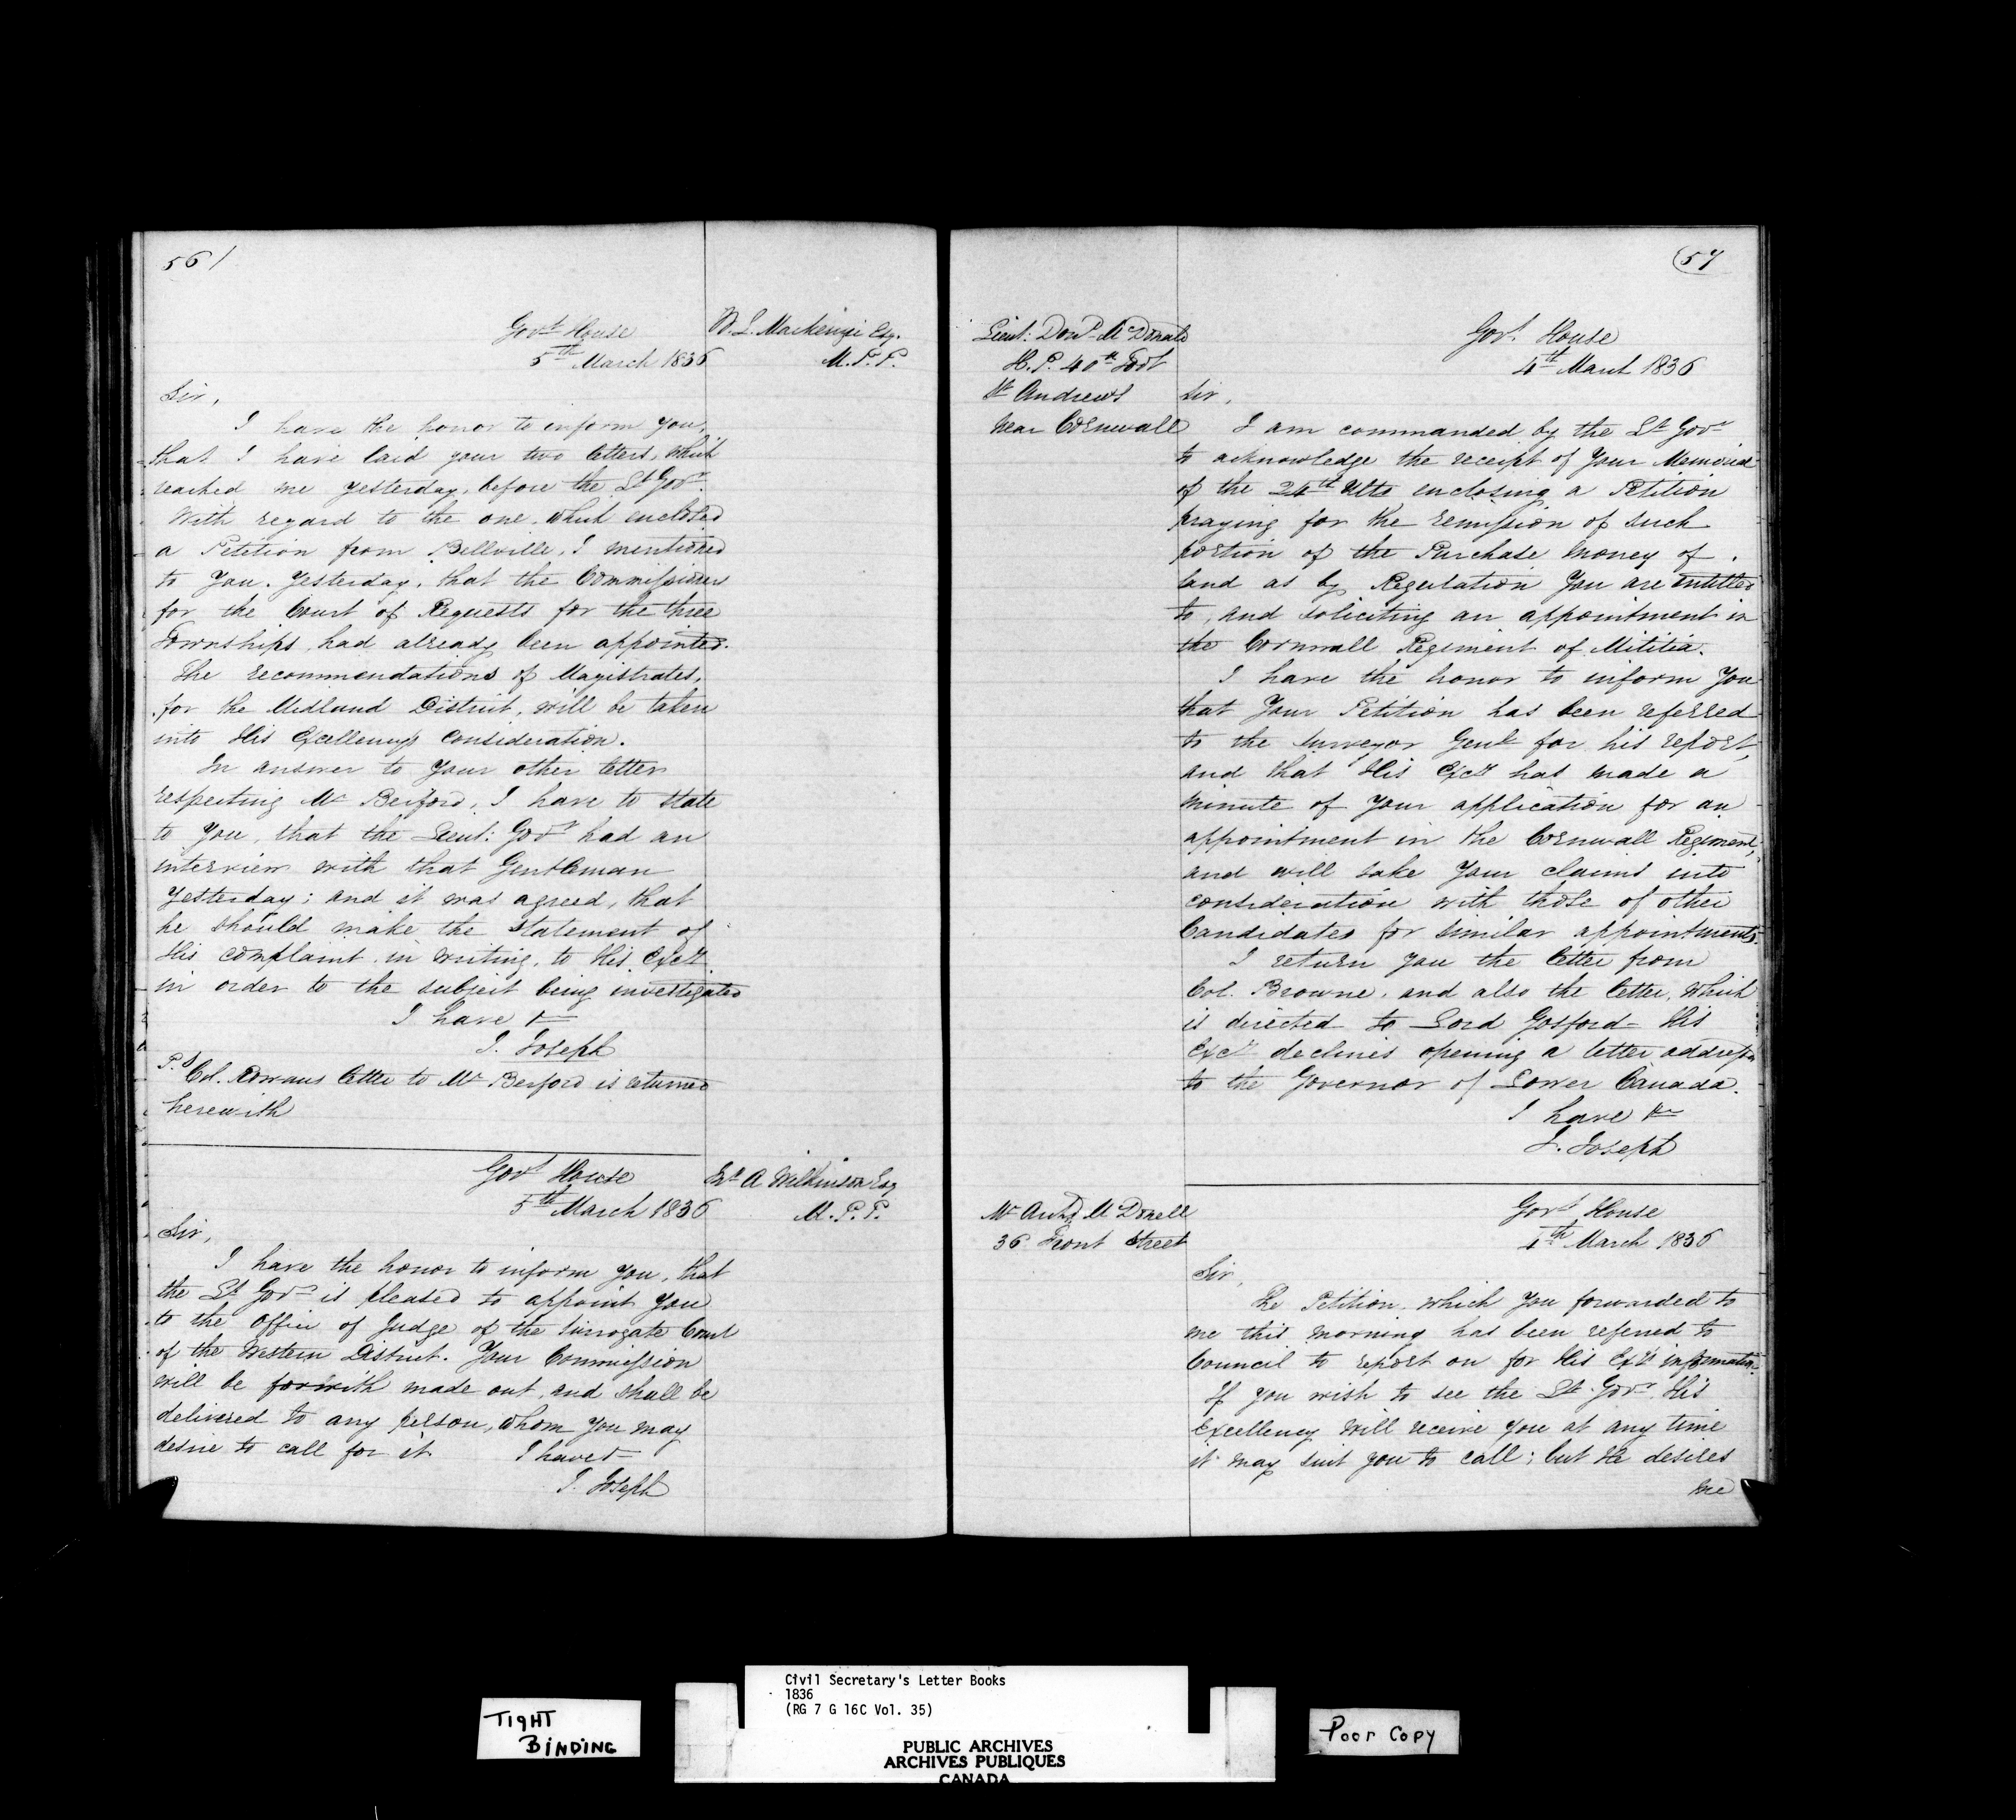 56/
W. L. Mackenzie Esq.
M. P. P.
Govt House
5th March 1836
Sir,
I have the honor to inform you,
that I have laid your two letters, which
reached me yesterday, before the Lt Govr.
With regard to the one, which enclosed
a Petition from Bellville, I mentioned
to You, Yesterday, that the Commissioners
for the Court of Requests for the three
Townships, had already been appointed.
The recommendations of Magistrates,
for the Midland District, will be taken
into His Excellency's consideration.
In answer to Your other letter
respecting Mr Berford, I have to state
to You, that the Lieut: Govr had an
interview with that Gentleman
Yesterday; and it was agreed, that
he should make the statement of
His complaint, in writing, to His Excy
in order to the subject being investigated
I have &c
J. Joseph
P.S Col. Rowans letter to Mr Berford is returned
herewith
A Wilkinson Esq
M. P. P.
Govt House
5th March 1836
Sir,
I have the honor to inform you, that
the Lt Govr is pleased to appoint You
to the Office of Judge of the Surrogate Court
of the Western District. Your Commission
will be forwith made out, and shall be
delivered to any person, whom you may
desire to call for it. I have &c
J. Joseph
57
Lieut: Dond McDonald
H. P. 40th Foot
St Andrews
near Cornwall
Govt House
4th March 1836
Sir,
I am commanded by the Lt Govr
to acknowledge the receipt of Your Memorial
of the 24th Ulto enclosing a Petition
praying for the remission of such
portion of the Purchase money of
land as by Regulation You are entitled
to, and soliciting an appointment in
the Cornwall Regiment of Militia.
I have the honor to inform You
that Your Petition has been referred
to the Surveyor Genl for his report,
and that His Excy has made a
minute of Your application for an
appointment in the Cornwall Regiment,
and will take Your claims into
consideration with those of other
Candidates for similar appointments.
I return you the letter from
Col. Browne, and also the letter, which
is directed to Lord Gosford - His
Excy declines opening a letter addressed
to the Governor of Lower Canada.
I have &c
J. Joseph
Mr Archd McDonell
36 Front Street
Govt House
4th March 1836
Sir,
The Petition, which You forwarded to
me this morning has been referred to
Council to report on for His Excy's information.
If you wish to see the Lt Govr, His
Excellency will receive you at any time
it may suit you to call; but He desires
me
TIGHT
BINDING
Civil Secretary's Letter Books
1836
(RG 7 G 16C Vol. 35)
PUBLIC ARCHIVES
ARCHIVES PUBLIQUES
CANADA
Poor Copy